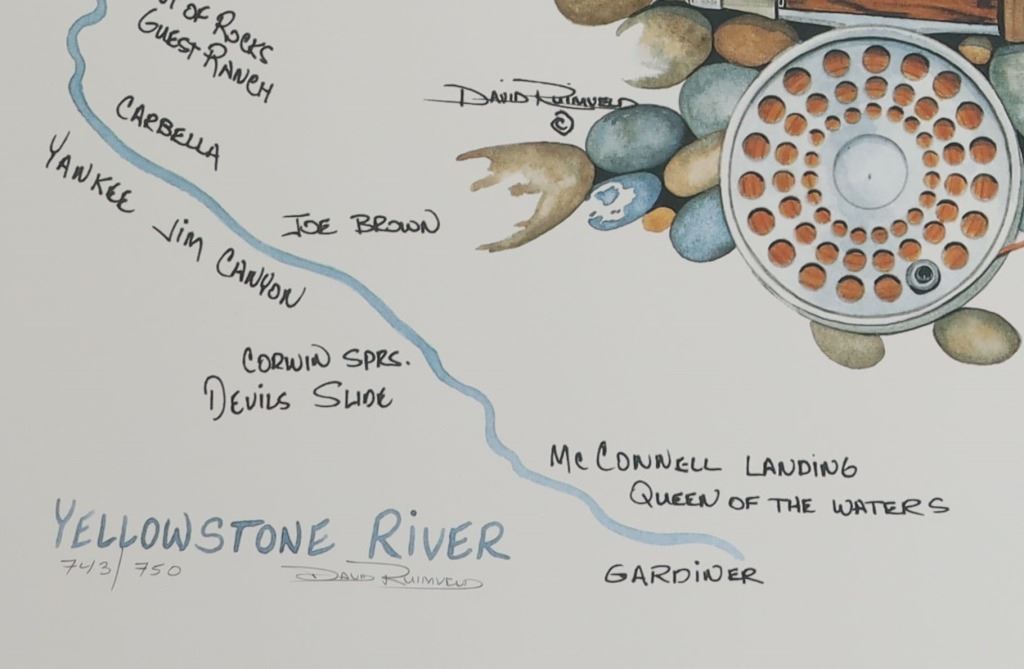 OF ROCKS
GUEST RANCH
DAVID RUIMVELD
©
CARBELLA
YANKEE JIM CANYON
JOE BROWN
CORWIN SPRS.
DEVILS SLIDE
MC CONNELL LANDING
QUEEN OF THE WATERS
YELLOWSTONE RIVER
743/750 DAVID RUIMVELD
GARDINER